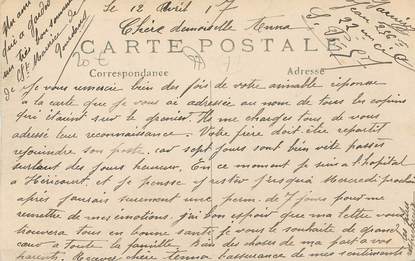 Le 12 Avril 17
Chère demoiselle Anna
CARTE POSTALE
Correspondance
Adresse
Je vous remercie bien des fois de votre aimable réponse
à la carte que je vous ai adressée au nom de tous les copins
qui étaient sur le grenier. Ils me charges tous de vous
adressé leur reconnaissance. Votre père doit être repartit
rejoindre son poste. car sept jours sont bien vite passés
surtout des jours heureux. En ce moment je suis à l'hopital
à Héricourt et je pense y rester jusqu'à Mercredi prochain
après j'aurais surement une perm. de 7 jours pour me
remettre de mes émotions. j'ai bon espoir que ma lettre vous
trouvera tous en bonne santé. je vous le souhaite de grand
cœur à toute la famille. Bien des choses de ma part à vos
parents. Recevez chère Anna l'assurance de mes sentiments